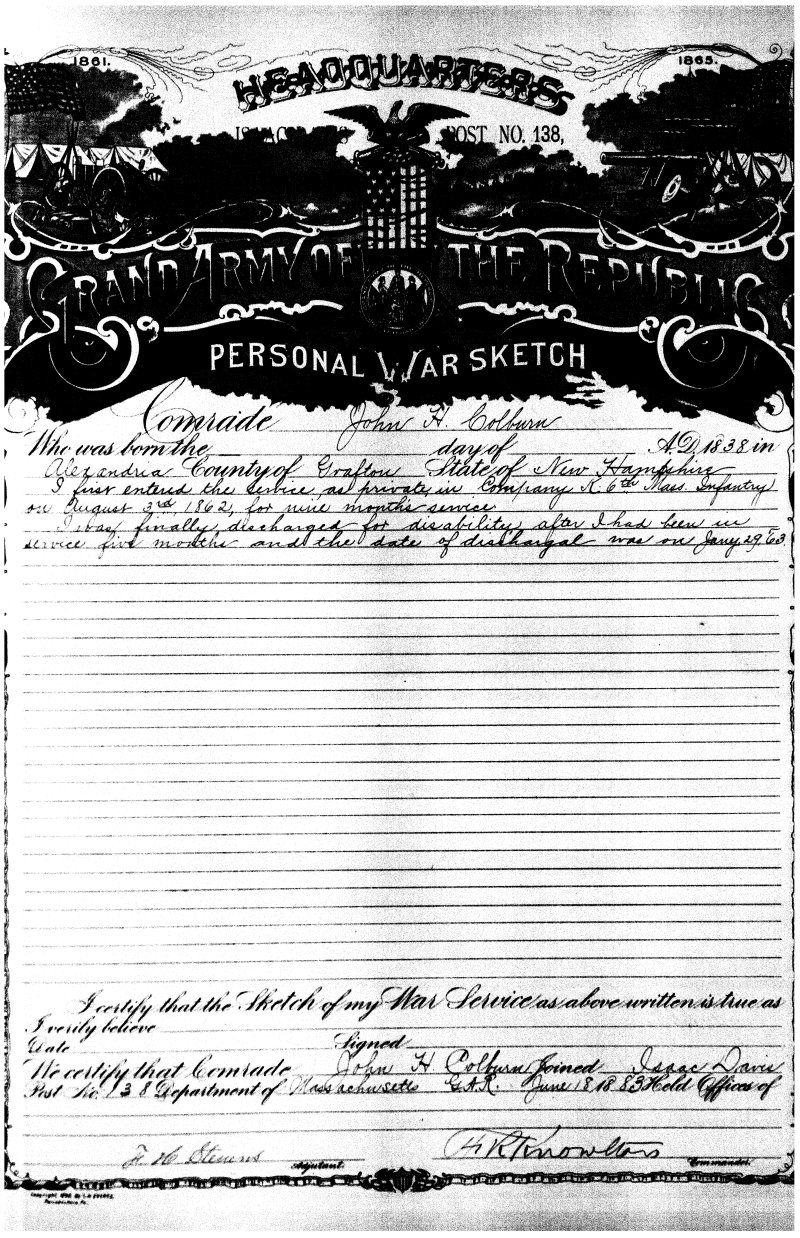 1861. 1865.
HEADQUARTERS
POST NO. 138,
GRAND ARMY OF THE REPUBLIC
PERSONAL WAR SKETCH
Comrade John H. Colburn
Who was born the day of A.D. 1838 in
Alexandria County of Grafton State of New Hampshire
I first entered the service, as private, in Company K. 6th Mass. Infantry
on August 3rd, 1862, for nine months service
I was finally discharged for disability, after I had been in
service five months and the date of dischargal was on Jany 29, 63
I certify that the Sketch of my War Service as above written is true as
I verily believe
Date Signed
We certify that Comrade John H Colburn Joined Isaac Davis
Post No. 138 Department of Massachusetts G.A.R. June 18 1883 Held Offices of
F. H. Stevens Adjutant. Knowlton Commander.
Copyright
Philadelphia, Pa.